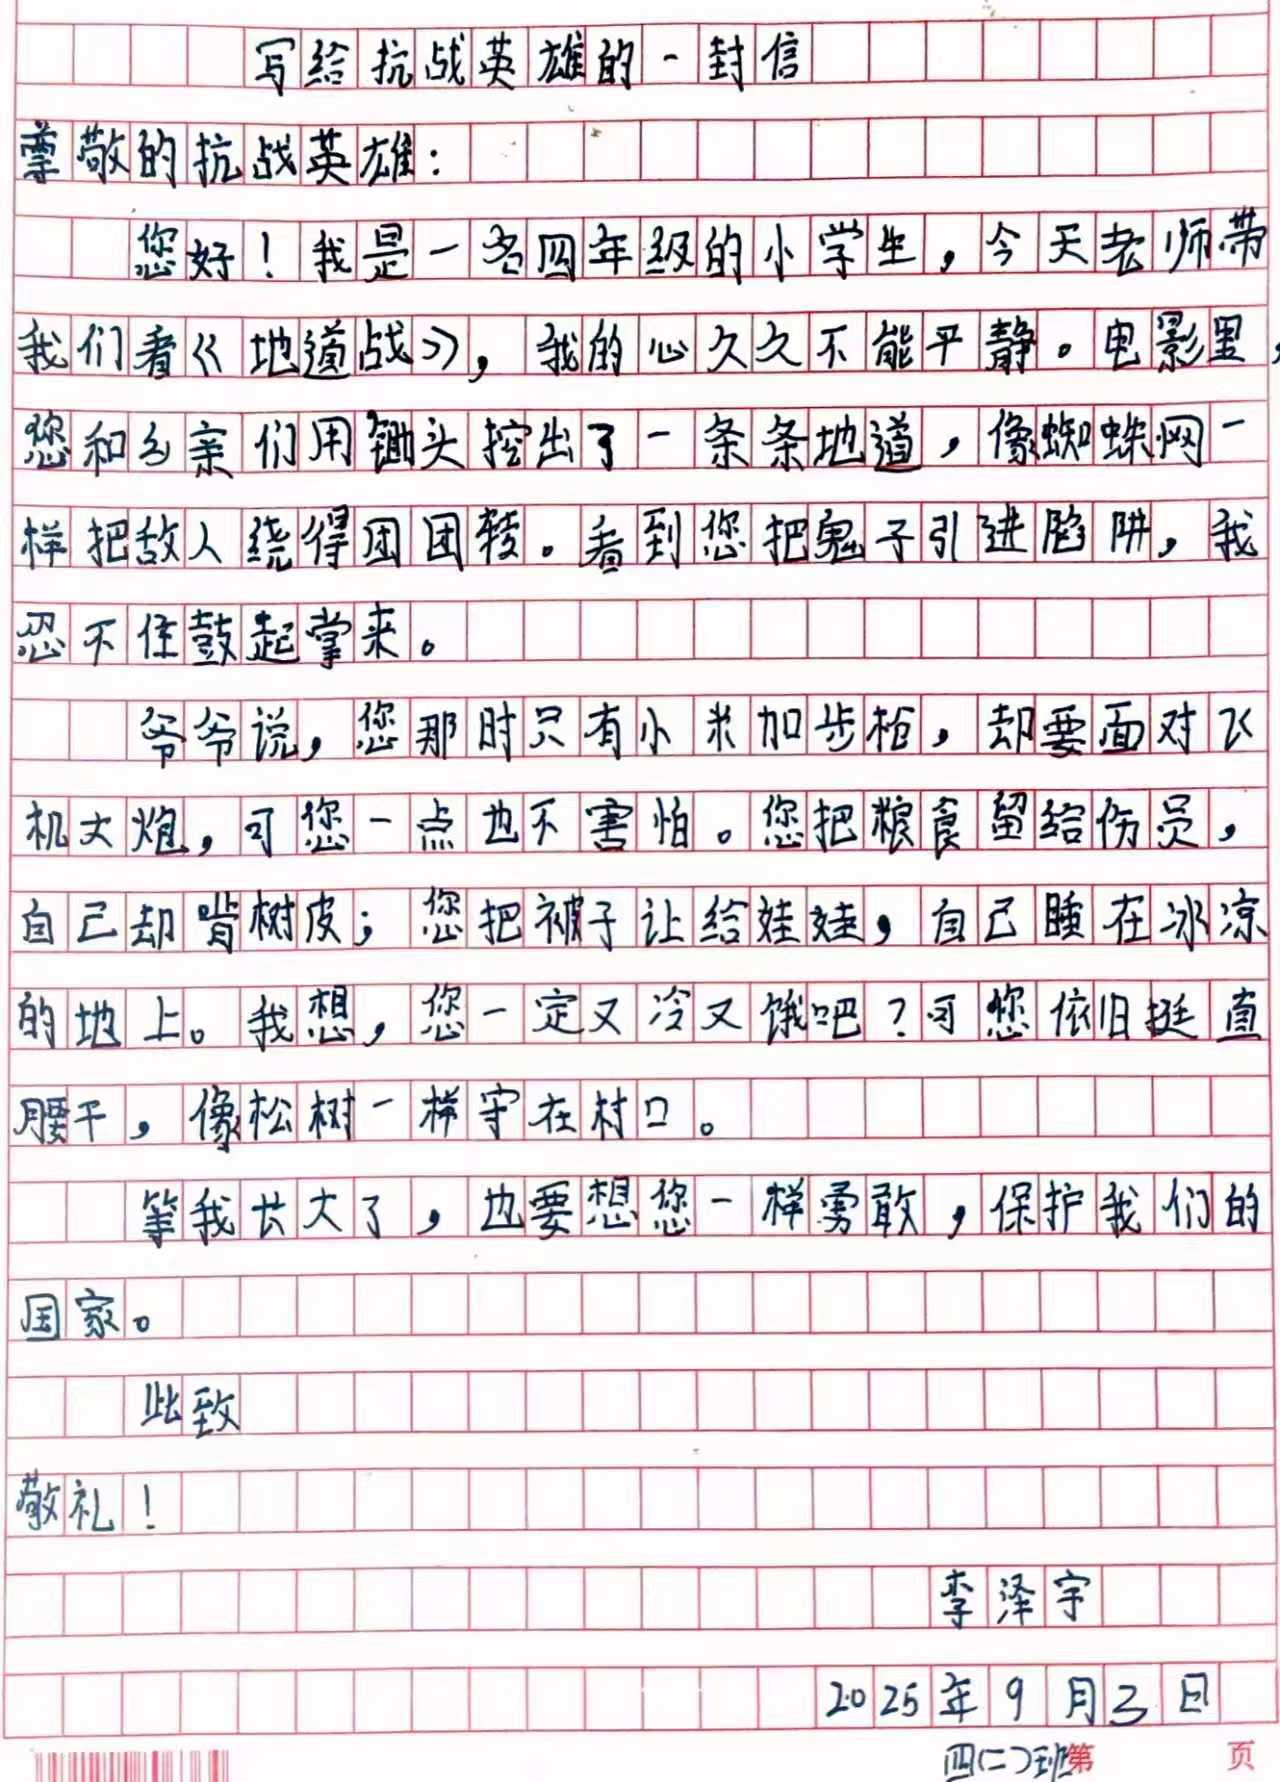 写给抗战英雄的一封信
尊敬的抗战英雄：
您好！我是一名四年级的小学生，今天老师带
我们看《地道战》，我的心久久不能平静。电影里，
您和乡亲们用锄头挖出了一条条地道，像蜘蛛网一
样把敌人绕得团团转。看到您把鬼子引进陷阱，我
忍不住鼓起掌来。
爷爷说，您那时只有小米加步枪，却要面对飞
机大炮，可您一点也不害怕。您把粮食留给伤员，
自己却啃树皮；您把被子让给娃娃，自己睡在冰凉
的地上。我想，您一定又冷又饿吧？可您依旧挺直
腰干，像松树一样守在村口。
等我长大了，也要想您一样勇敢，保护我们的
国家。
此致
敬礼！
李泽宇
2025年9月3日
四(二)班第 页